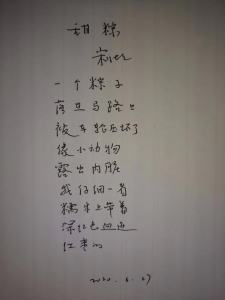 甜粽
一个粽子
落在马路上
被车轮压坏了
像小动物
露出内脏
我仔细一看
糯米上带着
深红色血迹
红枣的
2020.6.27